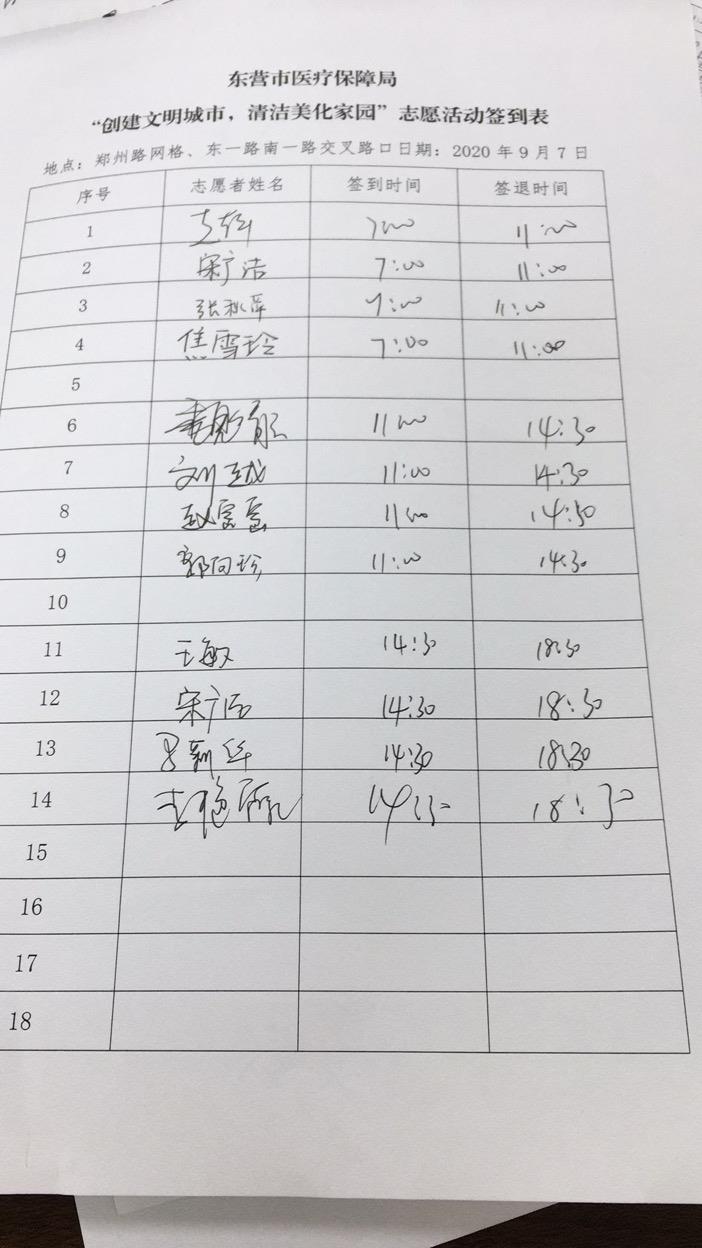 东营市医疗保障局
“创建文明城市，清洁美化家园”志愿活动签到表
地点：郑州路网格、东一路南一路交叉路口日期：2020年9月7日
序号 志愿者姓名 签到时间 签退时间
1 7:00 11:00
2 宋广洁 7:00 11:00
3 张秋萍 7:00 11:00
4 焦雪玲 7:00 11:00
5
6 11:00 14:30
7 11:00 14:30
8 11:00 14:30
9 郭向珍 11:00 14:30
10
11 王敏 14:30 18:30
12 14:30 18:30
13 14:30 18:30
14 14:30 18:30
15
16
17
18